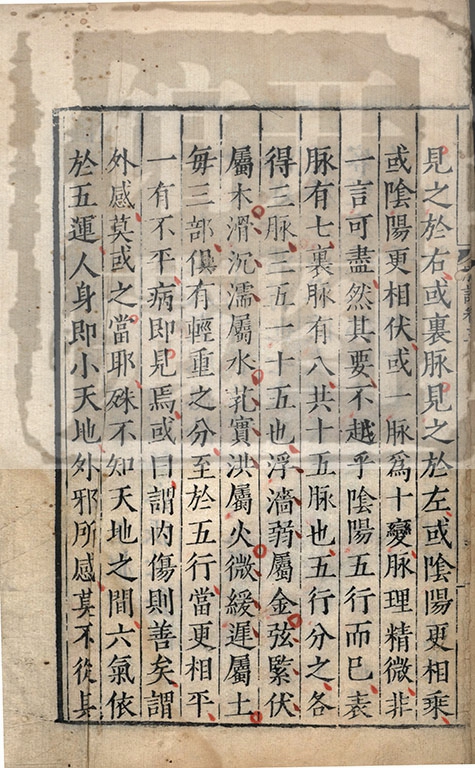 見之於右或裏脉見之於左或隂陽更相乘
或隂陽更相伏或一脉爲十變脉理精微非
一言可盡然其要不越乎隂陽五行而已表
脉有七裏脉有八共十五脉也五行分之各
得三脉三五一十五也浮濇弱屬金弦緊伏
屬木滑沉濡屬水芤實洪屬火微緩遲屬土
每三部俱有輕重之分至於五行當更相平
一有不平病即見焉或曰謂内傷則善矣謂
外感莫或之當耶殊不知天地之間六氣依
於五運人身即小天地外邪所感莫不從其